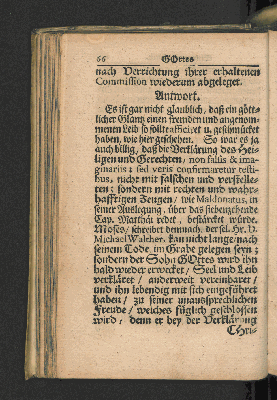 66 GOttes
nach Verrichtung ihrer erhaltenen
Commission wiederum abgeleget.
Antwort.
Es ist gar nicht glaublich, daß ein gött-
licher Glantz einen fremden und angenom-
menen Leib so sollte afficiret u. geschmücket
haben, wie hier geschehen. So war es ja
auch billig, daß die Verklärung des Hei-
ligen und Gerechten, non falsis & ima-
ginariis; sed veris confirmaretur testi-
bus, nicht mit falschen und verstelle-
ten; sondern mit rechten und wahr-
hafftigen Zeugen/ wie Maldonatus, in
seiner Auslegung, über das siebenzehende
Cap. Matthäi redet, bestärcket würde.
Moses/ schreibet demnach, der sel. Hr. D.
Michael Walther, kan nicht lange nach
seinem Tode im Grabe gelegen seyn;
sondern der Sohn GOttes wird ihn
bald wieder erwecket/ Seel und Leib
verkläret/ anderweit vereinbaret/
und ihn lebendig mit sich eingeführet
haben/ zu seiner unaussprechlichen
Freude/ welches füglich geschlossen
wird/ denn er bey der Verklärung
Chri-